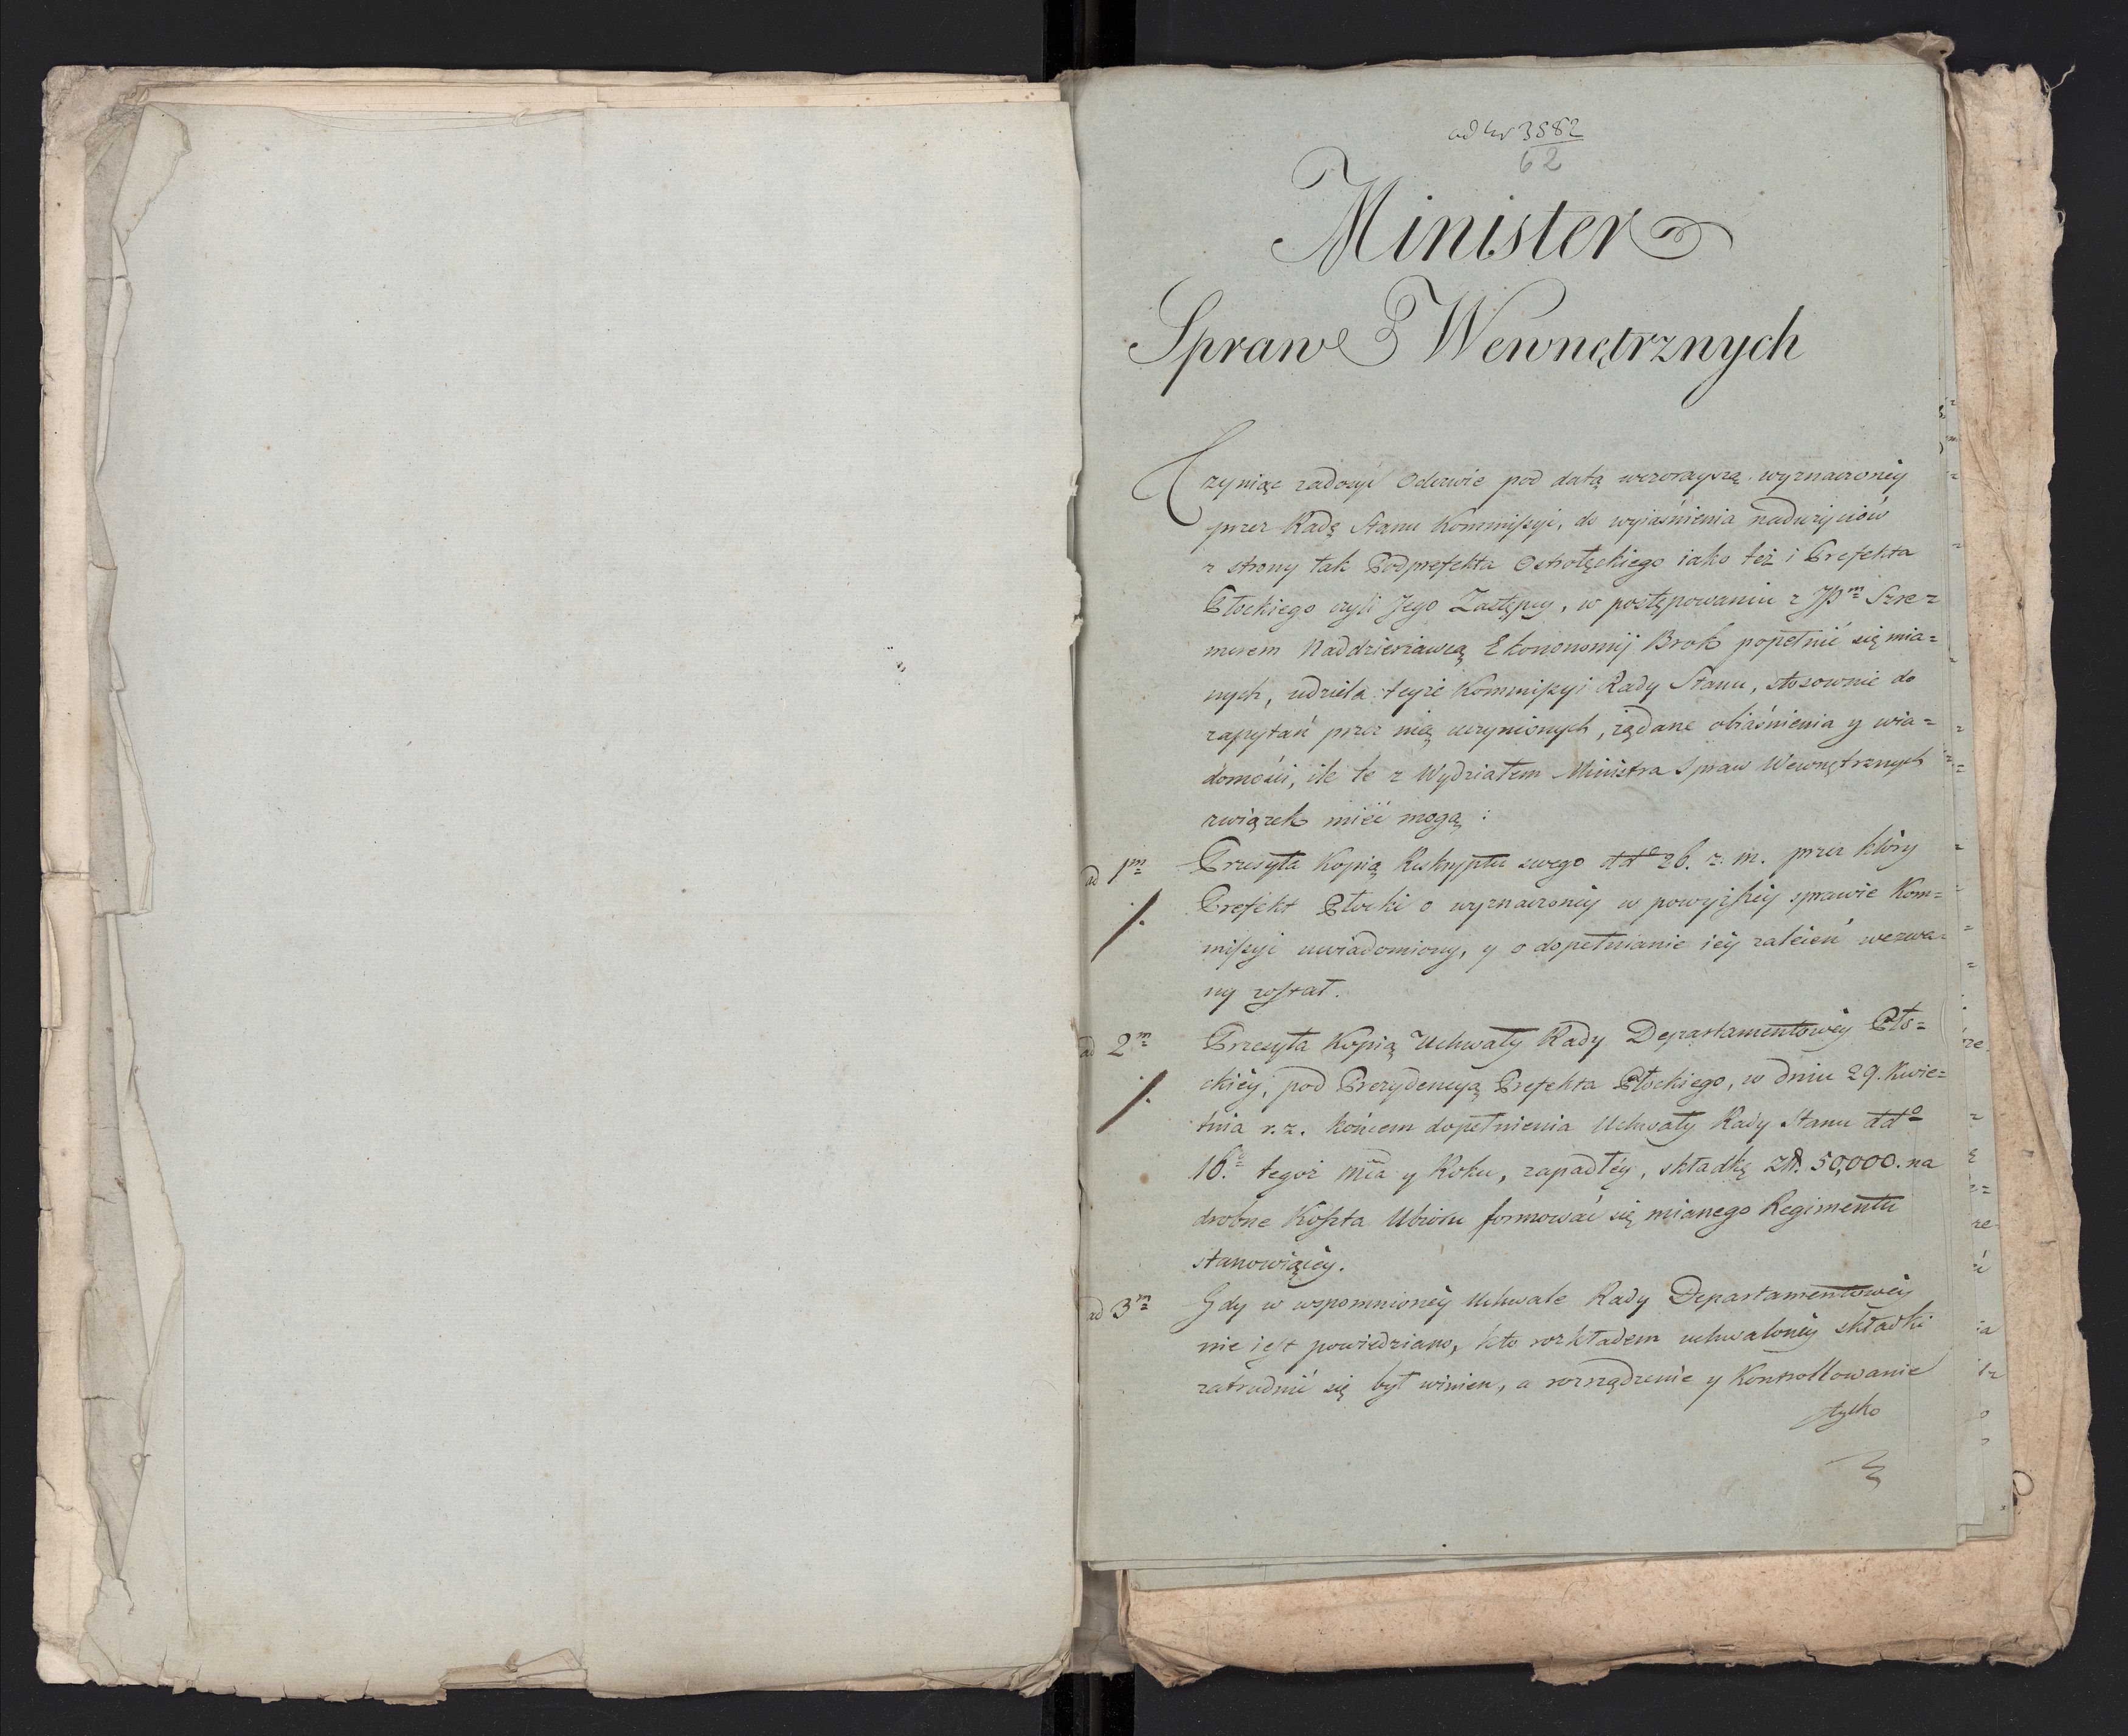 ad Nr 3582
62
Minister
Spraw Wewnętrznych
Czyniąc zadosyć Odezwie pod datą wczorayszą wyznaczonéy
przez Radę Stanu Kommissyi, do wyiaśnienia nadużyciów
z strony tak Podprefekta Ostrołęckiego iako też i Prefekta
Płockiego czyli Jego Zastępcy, w postępowaniu z JPm Szre=
merem Naddzierżawcą Ekonomij Brok popełnić się mia=
nych, udziela teyże Kommissyi Rady Stanu, stosownie do
zapytań przez nią uczynionych, żądane obiaśnienia y wia=
domości, ile te z Wydziałem Ministra Spraw Wewnętrznych
związek mieć mogą:
ad 1m Przesyła Kopią Reskryptu swego ddo 26. z. m. przez który
Prefekt Płocki o wyznaczonéy w powyższéy sprawie Kom=
missyi uwiadomiony, y o dopełnianie iéy zaleceń wezwa=
ny został.
ad 2m Przesyła Kopią Uchwały Rady Departamentowéy Pło=
ckiéy, pod Prezydencyą Prefekta Płockiego, w dniu 29. Kwie=
tnia r. z. końcem dopełnienia Uchwały Rady Stanu ddo
16. tegoż mca y Roku, zapadłéy, składkę Zł. 50,000. na
drobne Koszta Ubioru formować się mianego Regimentu
stanowiącéy.
ad 3m Gdy w wspomnionéy Uchwale Rady Departamentowéy
nie iest powiedziano, kto rozkładem uchwalonéy składki
zatrudnić się był winien, a rozrządzenie y Kontrollowanie
tylko